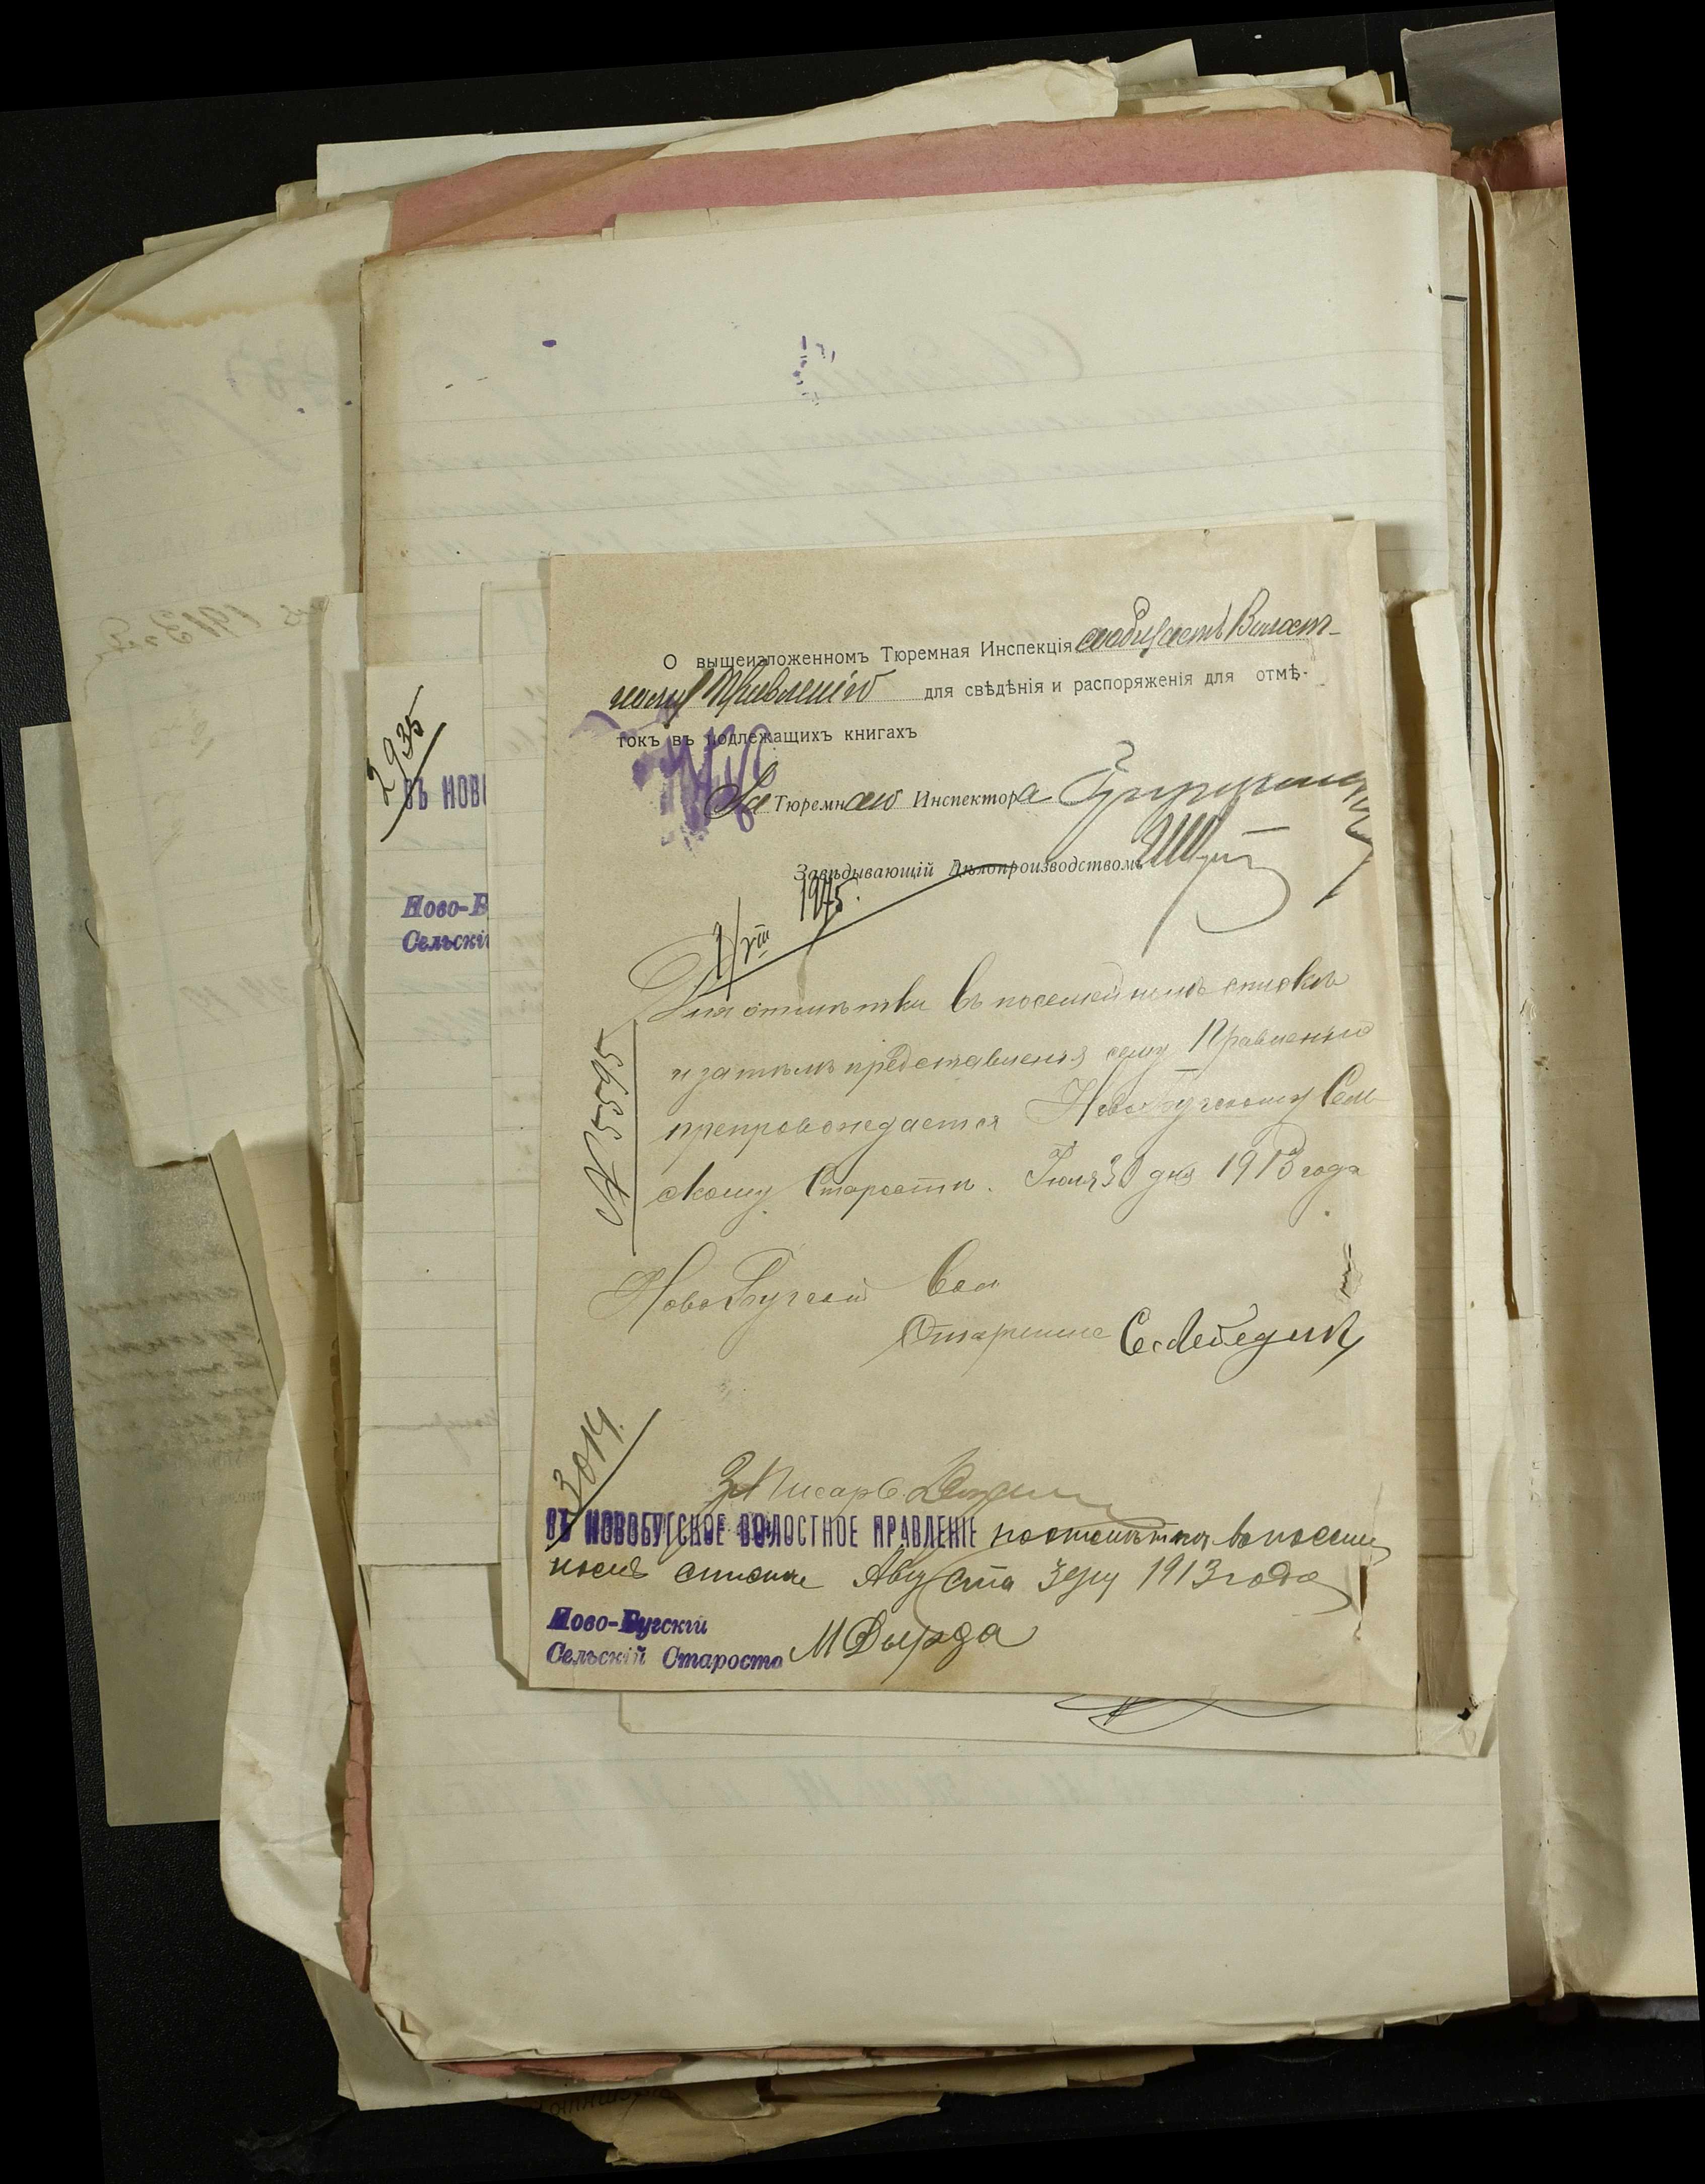 О вышеизложенномъ Тюремная Инспекція сообщаетъ Волост-
ному Правленію для свѣдѣнія и распоряженія для отмѣ-
токъ въ подлежащихъ книгахъ
За Тюремнаго Инспектора
Завѣдывающій Дѣлопроизводствомъ
1/VIII 1975.
Для отмѣтки въ посемейномъ спискѣ
и затѣмъ представленія сему Правленію
препровождается НовоБугскому Сель
скому Старостѣ. Іюля 30 дня 1913 года
№ 5595
НовоБугскій Вол
Старшина С. Лебедикъ
3014.
За Писаря
ВЪ НОВОБУГСКОЕ ВОЛОСТНОЕ ПРАВЛЕНІЕ по отмѣткѣ въ посемей
номъ списке Августа 3 дня 1913 года
Ново-Бугскій
Сельскій Староста М Дырда
2935
ВЪ НОВО
Ново-Б
Сельскі